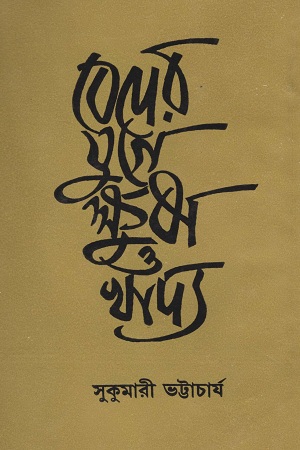 বেদের
যুগে
ক্ষুধা
ও
খাদ্য
সুকুমারী ভট্টাচার্য